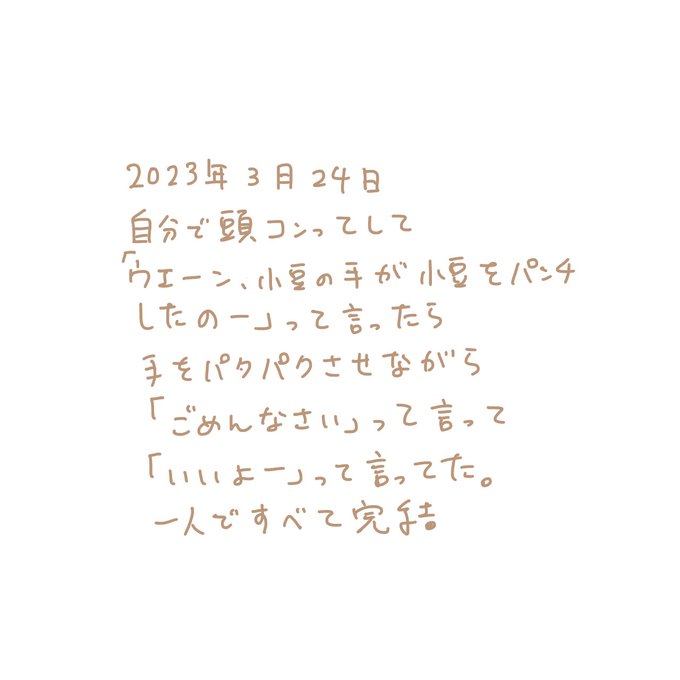 2023年3月24日
自分で頭コンってして
「ウエーン、小豆の手が小豆をパンチ
したのー」って言ったら
手をパクパクさせながら
「ごめんなさい」って言って
「いいよー」って言ってた。
一人ですべて完結。